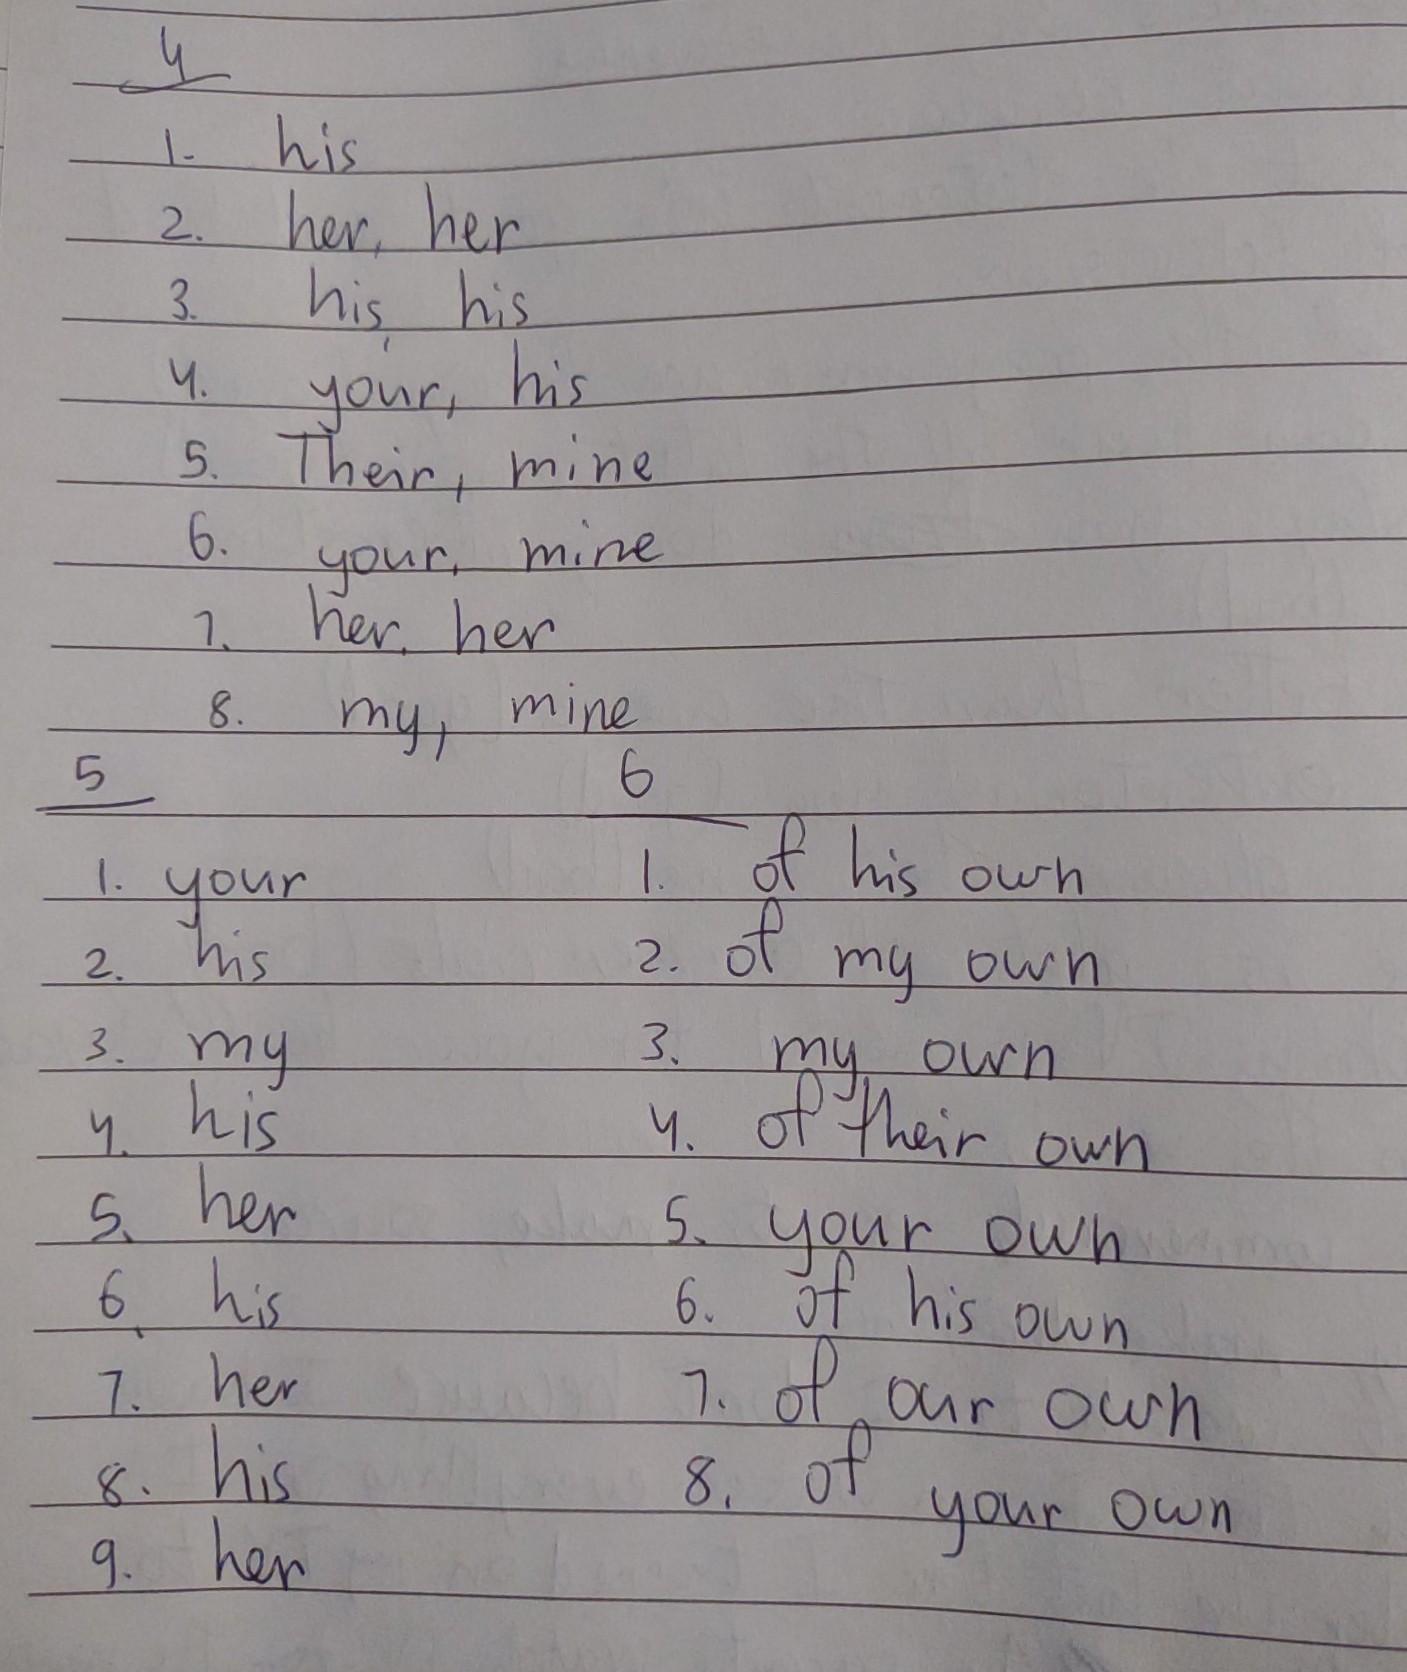 4
1. his
2. her, her
3. his, his
4. your, his
5. Their, mine
6. your, mine
7. her, her
8. my, mine
5
1. your
2. his
3. my
4. his
5. her
6. his
7. her
8. his
9. her
6
1. of his own
2. of my own
3. my own
4. of their own
5. your own
6. of his own
7. of our own
8. of your own